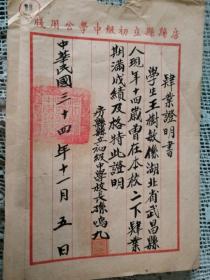 房縣縣立初級中學公用牋
肄業證明書
學生王樹敏係湖北省武昌縣
人現年十四歲曾在本校二下肄業
期滿成績及格特此證明
房縣縣立初級中學校長孫鳴九
中華民國三十四年十一月五日